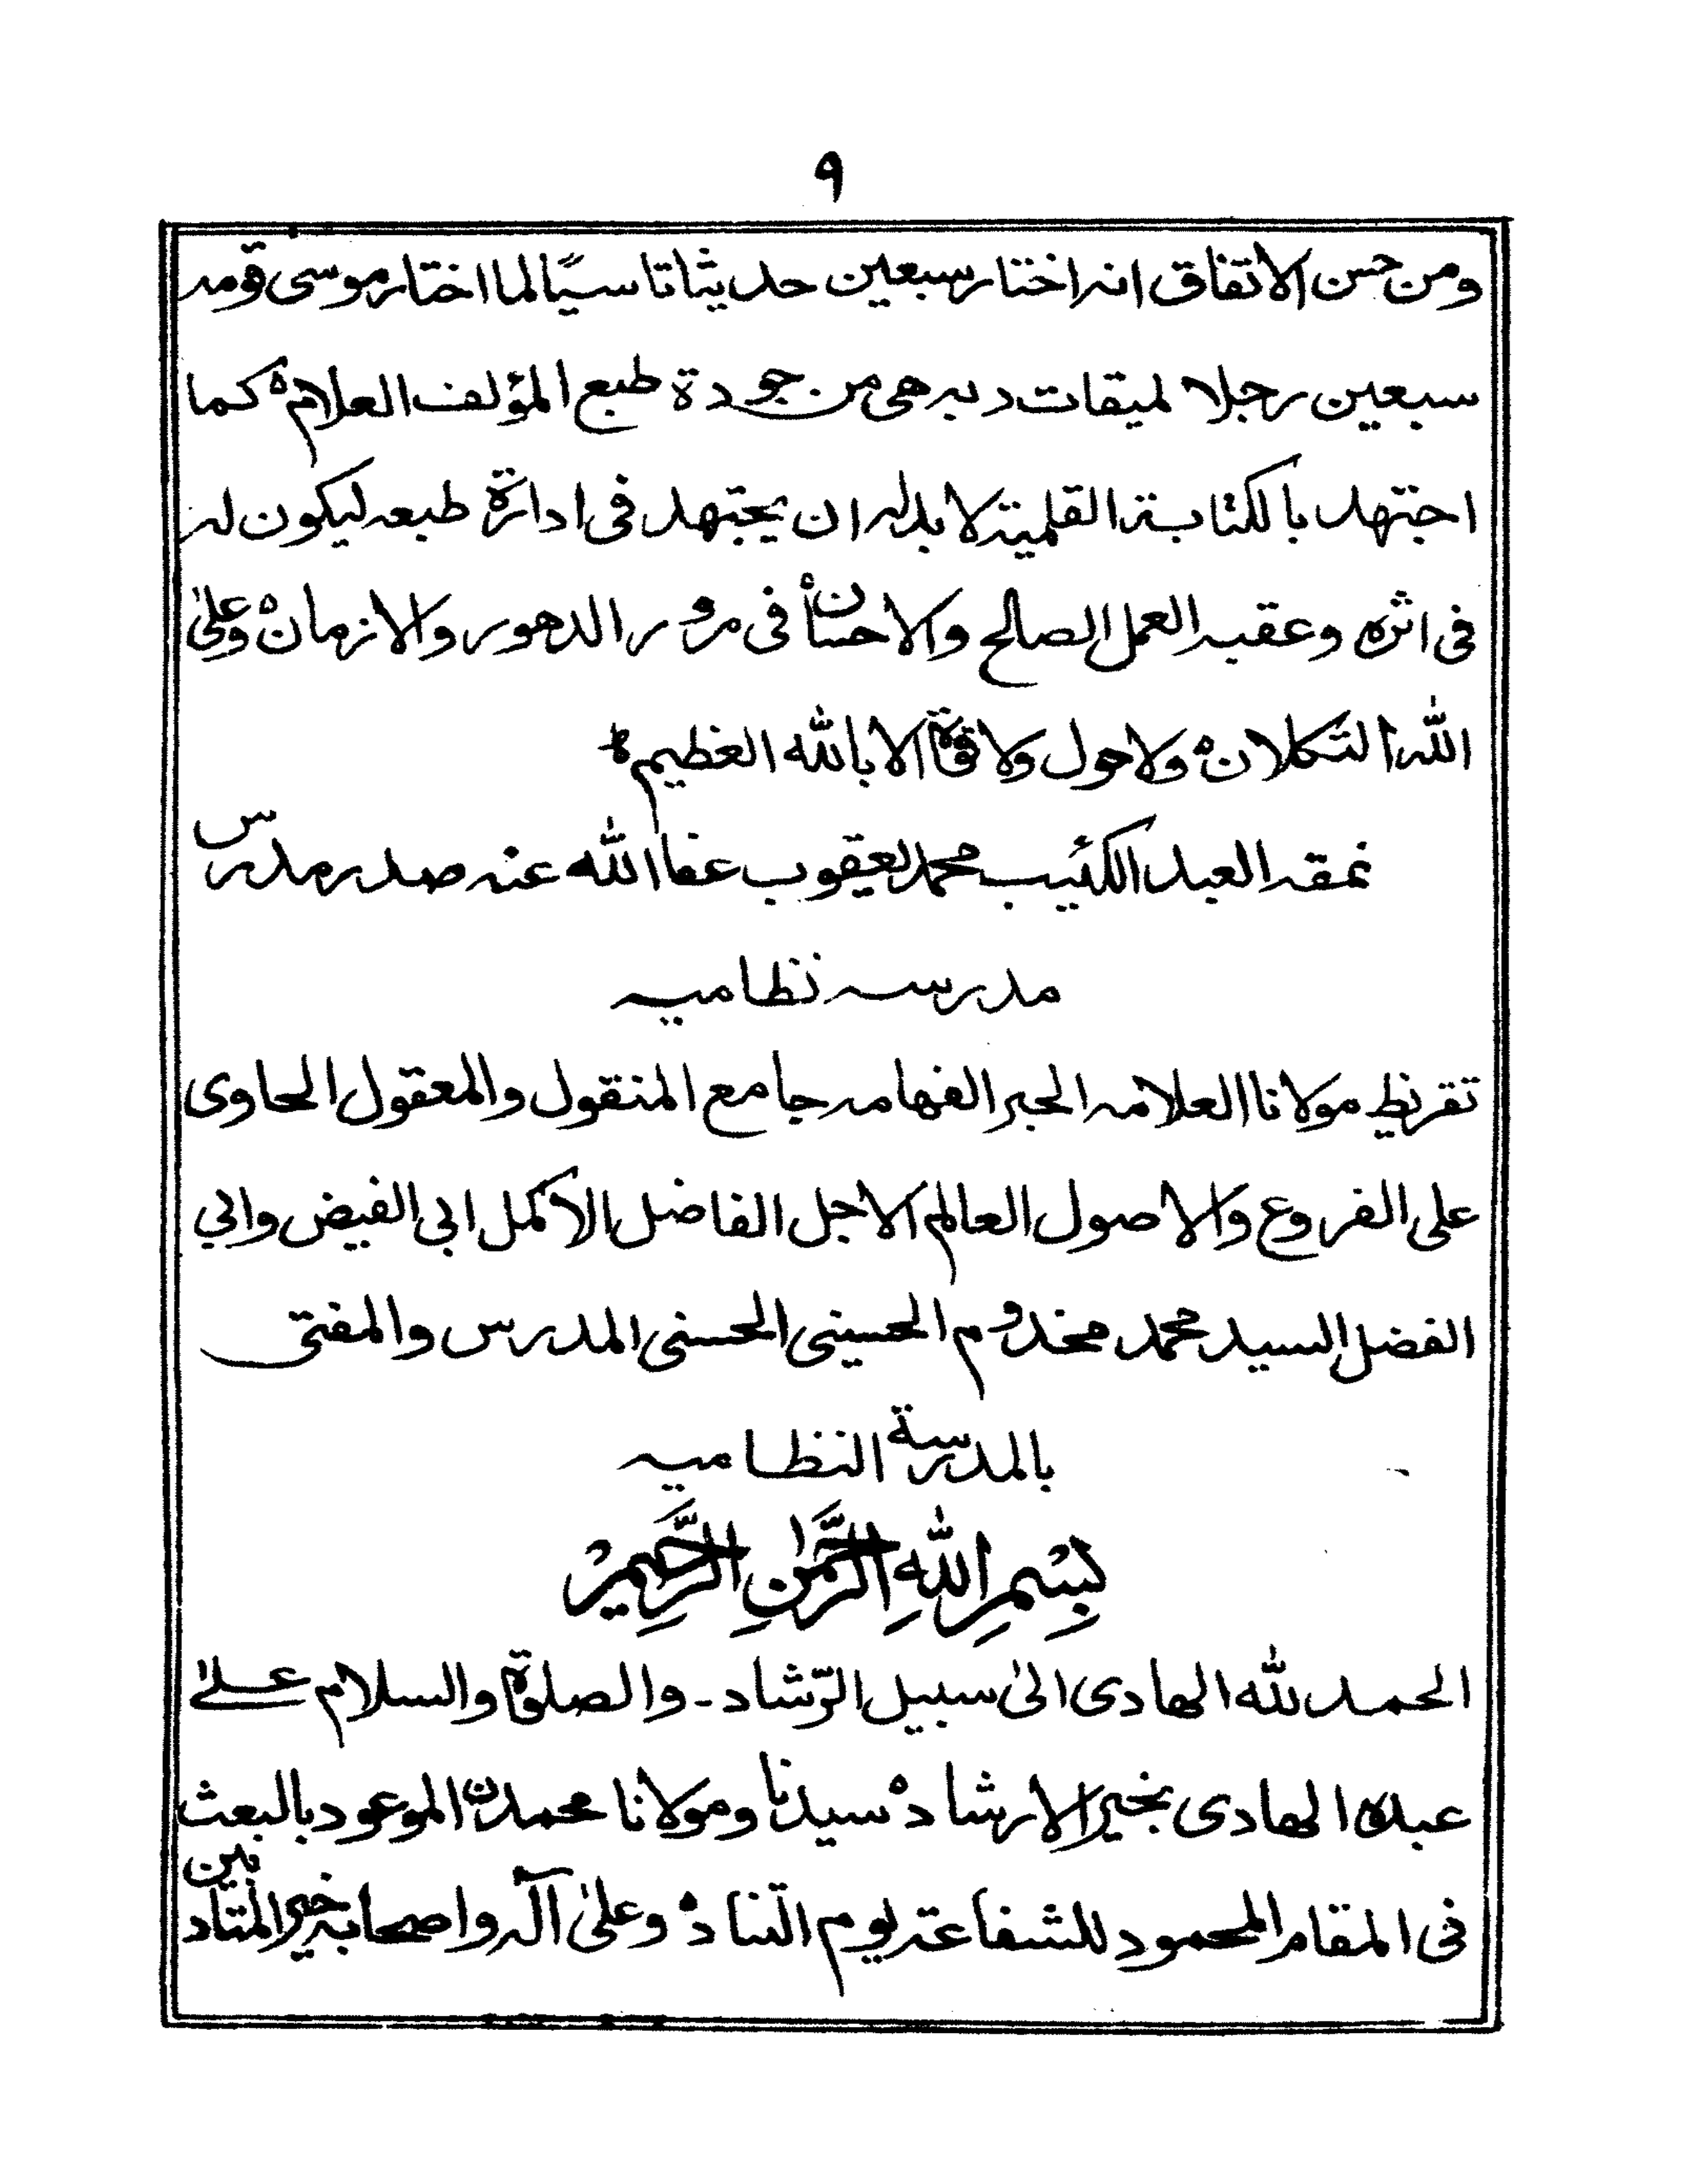 ٩
ومن حسن الاتفاق انه اختار سبعين حديثا تاسيًا لما اختار موسى قومه
سبعين رجلا لميقات ربه هی من جودة طبع المؤلف العلامه كما
اجتهد بالكتابة القلمية لا بد له ان يجتهد فی ادارة طبعه ليكون له
فی اثره وعقبه العمل الصالح والاحسان فی مرور الدهور والازمان وعلیٰ
الله التكلان ولا حول ولا قوة الا بالله العظيم
نمقه العبد الكئيب محمد يعقوب عفا الله عنه صدر مدرس
مدرسه نظاميه
تقريظ مولانا العلامه الحبر الفهامه جامع المنقول والمعقول الحاوی
علی الفروع والاصول العالم الاجل الفاضل الاكمل ابی الفيض وابي
الفضل السيد محمد مخدوم الحسينی الحسنی المدرس والمفتی
بالمدرسة النظاميه
بِسْمِ اللهِ الرَّحْمٰنِ الرَّحِيْمِ
الحمد لله الهادی الیٰ سبيل الرّشاد - والصلوة والسلام علیٰ
عبده الهادی بخير الارشاد سيدنا ومولانا محمدن الموعود بالبعث
فی المقام المحمود للشفاعة يوم التناد وعلیٰ آله واصحابه خير المتادبين